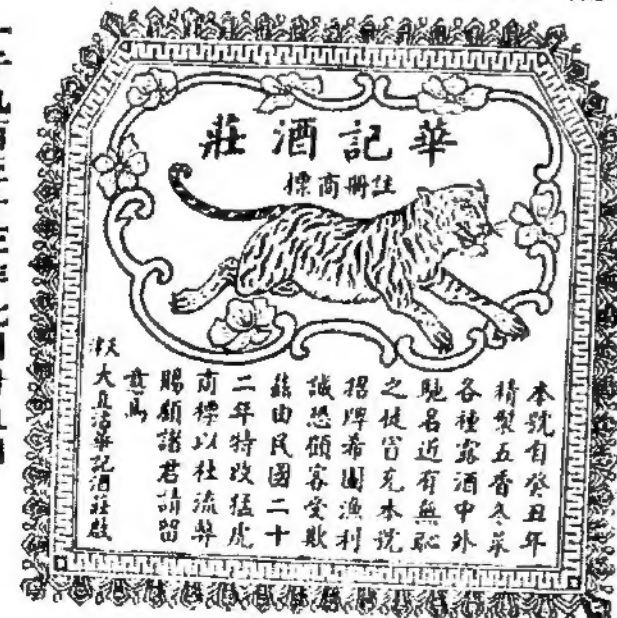 華記酒莊
註冊商標
本號自癸丑年
精製五香冬菜
各種露酒中外
馳名近有無恥
之徒冒充本號
招牌希圖漁利
誠恐顧客受欺
茲由民國二十
二年特改猛虎
商標以杜流弊
賜顧諸君請留
意焉
天津
大直沽華記酒莊啟